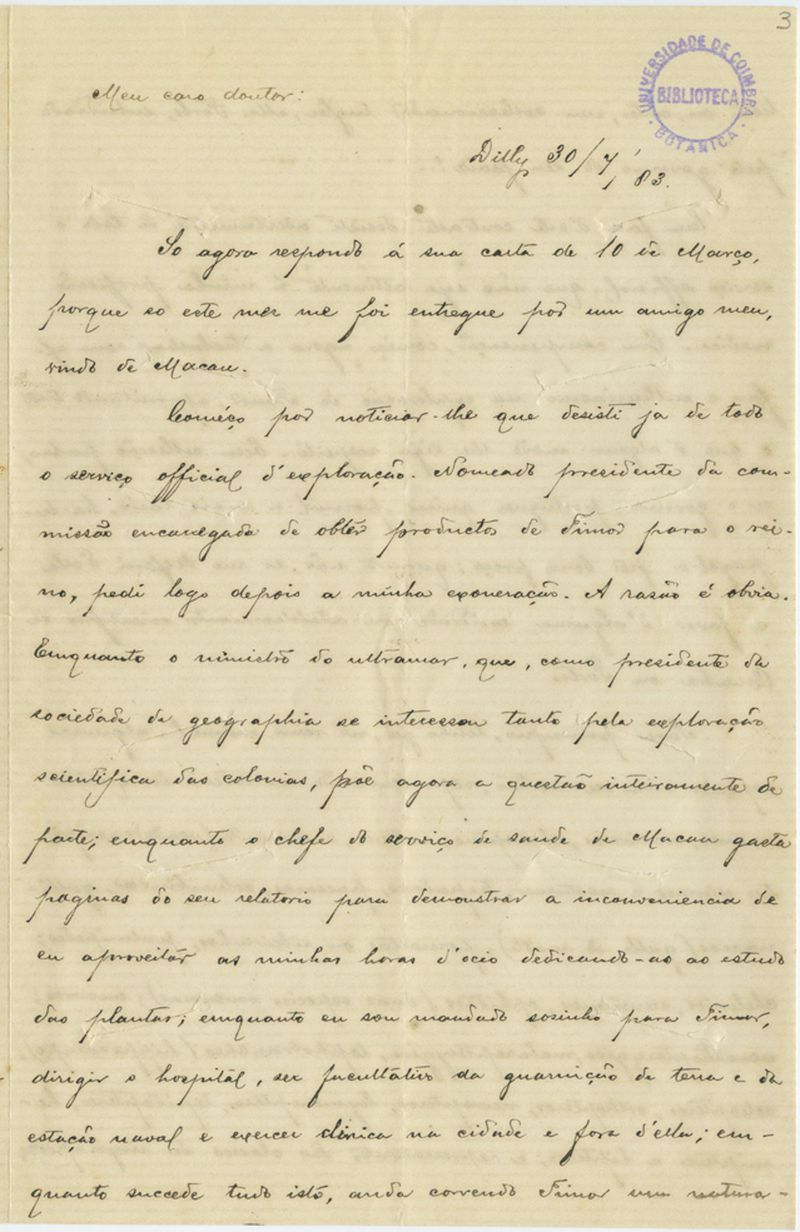 3
UNIVERSIDADE DE COIMBRA
BIBLIOTECA
BOTANICA
Meu caro doutor:
Dilly 30/7/83.
So agora respondo á sua carta de 10 de Março,
porque so este mez me foi entregue por um amigo meu,
vindo de Macau.
Coméço por noticiar-lhe que desisti ja de todo
o serviço official d'exploração. Nomeado presidente da com-
missão encarregada de obtêr productos de Timor para o rei-
no, pedi logo depois a minha exoneração. A rasão é obvia.
Emquanto o ministro do ultramar, que, como presidente da
sociedade de geographia se interessou tanto pela exploração
scientifica das colonias, põe agora a questão inteiramente de
parte; emquanto o chefe do serviço de saude de Macau gasta
paginas do seu relatorio para demonstrar a inconveniencia de
eu aproveitár as minhas horas d'ocio dedicando-as ao estudo
das plantas; emquanto eu sou mandado sosinho para Timor,
dirigir o hospitál, ser facultativo da guarnição de terra e da
estação naval e exercer clinica na cidade e fora d'ella; em-
quanto succede tudo isto, anda correndo Timor um natura-